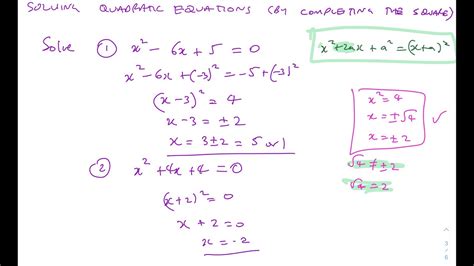 SOLVING QUADRATIC EQUATIONS (BY COMPLETING THE SQUARE)
Solve ① x² - 6x + 5 = 0
x² + 2ax + a² = (x+a)²
x² - 6x + (-3)² = -5 + (-3)²
(x - 3)² = 4
x - 3 = ± 2
x = 3 ± 2 = 5 or 1
x² = 4
x = ±√4
x = ± 2
✓
② x² + 4x + 4 = 0
(x + 2)² = 0
x + 2 = 0
x = -2
√4 ≠ ± 2
√4 = 2
3
/
6